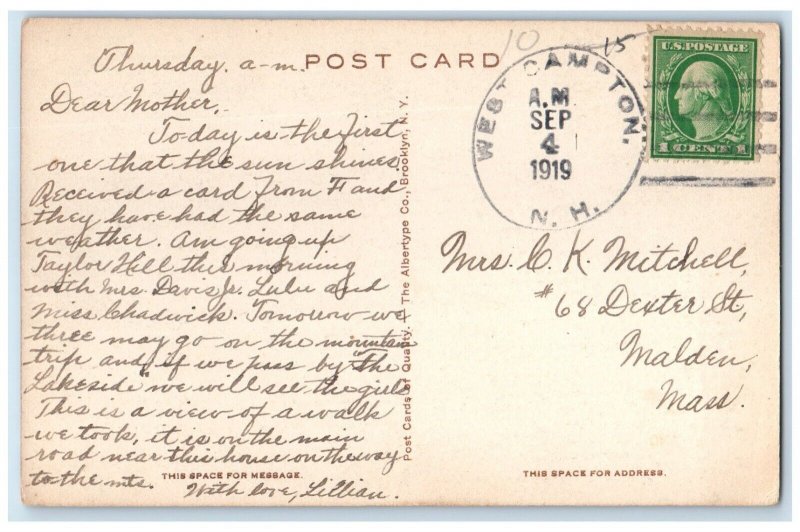 Thursday, a-m.
POST CARD
Dear Mother,
To-day is the first
one that the sun shines.
Received a card from F and
they have had the same
weather. Am going up
Taylor Hill this morning
with Mrs. Davis Jr. Lulu and
Miss Chadwick. Tomorrow we
three may go on the mountain
trip and if we pass by "the
Lakeside" we will see the girls
This is a view of a walk
we took, it is on the main
road near this house on the way
to the mts.
With love, Lillian.
THIS SPACE FOR MESSAGE.
Post Cards of Quality. — The Albertype Co., Brooklyn, N. Y.
10
15
WEST CAMPTON,
A.M
SEP
4
1919
N. H.
U.S. POSTAGE
1 CENT 1
Mrs. C. K. Mitchell,
#68 Dexter St,
Malden,
Mass.
THIS SPACE FOR ADDRESS.